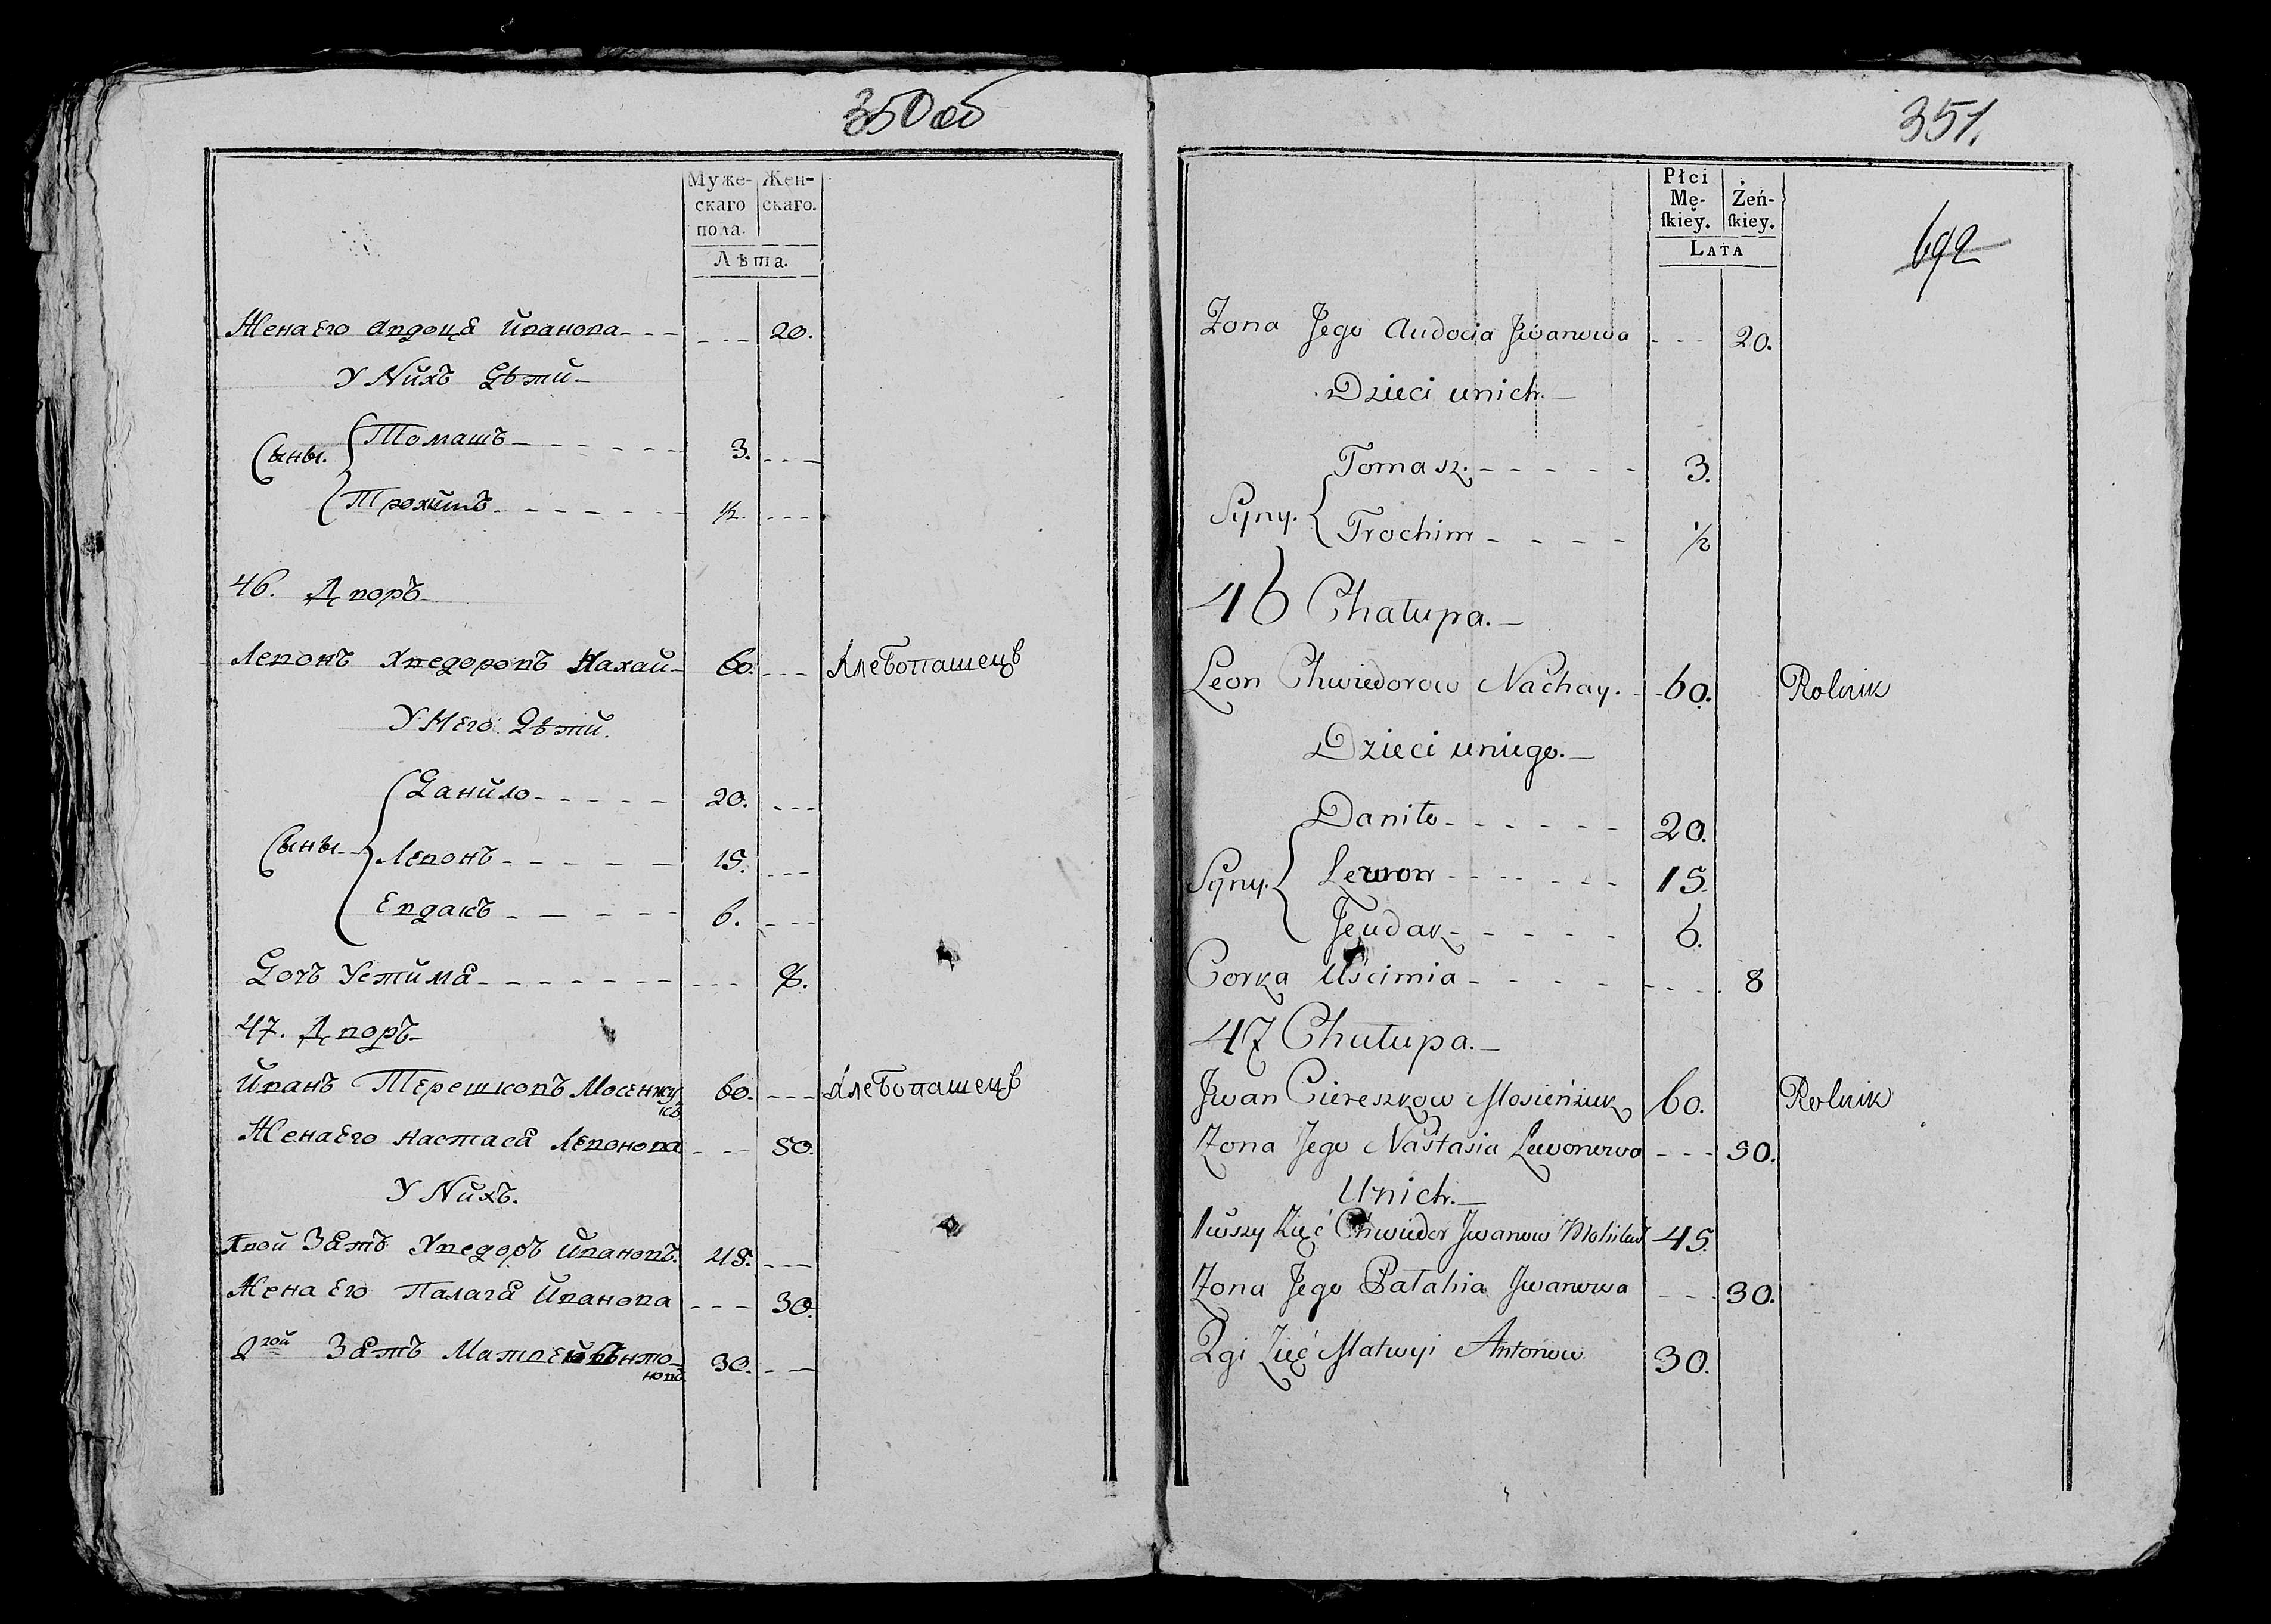 350 об
Муже-
скаго
пола.
Жен-
скаго.
Лѣта.
Жена Его Авдоця Иванова - - - - - - 20.
У Нихъ Дѣти
Томашъ - - - - - - 3. - - -
Сыны.
Трохимъ - - - - - - ½. - - -
46. Дворъ
Левонъ Хведоровъ Нахай 60. - - - Хлебопашецъ
У Него Дѣти.
Данило - - - - - 20. - - -
Сыны Левонъ - - - - - 15. - - -
Евдакъ - - - - - 6. - - -
Дочъ Устимя - - - - - - - - - - 8.
47. Дворъ
Иванъ Терешковъ Мосенжу
къ 60. - - - Хлебопашецъ
Жена Его Настася Левонова - - - 50.
У Нихъ.
Зять Хведоръ Ивановъ. 45. - - -
Жена Его Палагя Иванова - - - 30.
2гой Зять Матвей Анто-
новъ 30. - - -
351.
Płci
Mę-
ſkiey.
Żeń-
ſkiey.
LATA
692
Zona Jego Audocia Jwanowa - - - 20.
Dzieci unich.
Tomasz. - - - - - 3.
Syny.
Trochim - - - - ½
46 Chałupa.
Leon Chwiedorow Nachay. - 60. Rolnik
Dzieci uniego.
Daniło - - - - - - 20.
Syny. Lewon - - - - - - 15.
Jeudak - - - - - 6.
Corka Uścimia - - - - - - - - 8
47 Chułupa.
Jwan Ciereszkow Mosieńżuk 60. Rolnik
Zona Jego Nastasia Lewonowa - - - 50.
Unich.
1wszy Zięć Chwiedor Jwanow 45.
Zona Jego Pałahia Jwanowa - - - 30.
2gi Zięć Matwyi Antonow 30.